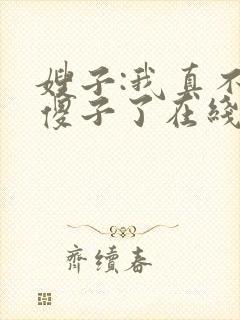 嫂子:我真不
傻子了在线
齊續春